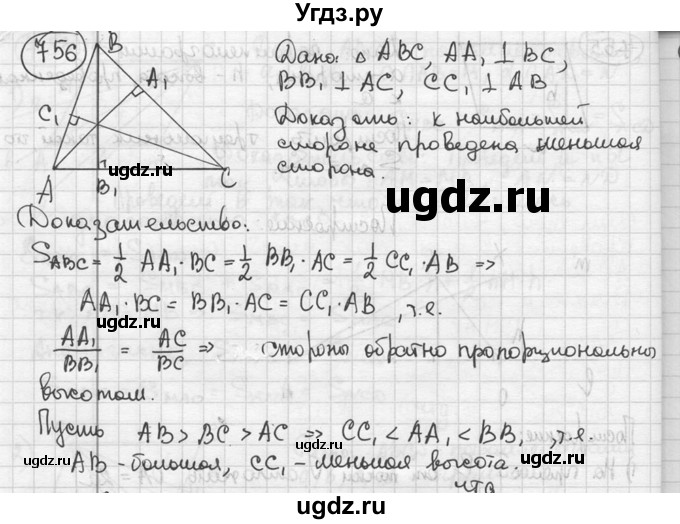 Угдз.ру
756
B
A₁
C₁
A
B₁
C
Дано: △ ABC, AA₁ ⊥ BC,
BB₁ ⊥ AC, CC₁ ⊥ AB
Доказать: к наибольшей
стороне проведена меньшая
сторона.
ugdz.ru
ugdz.ru
Доказательство:
S_ABC = 1/2 AA₁·BC = 1/2 BB₁·AC = 1/2 CC₁·AB =>
ugdz.ru
AA₁·BC = BB₁·AC = CC₁·AB, т.е.
ugdz.ru
AA₁/BB₁ = AC/BC => стороны обратно пропорциональны
высотам.
ugdz.ru
ugdz.ru
Пусть AB > BC > AC => CC₁ < AA₁ < BB₁, т.е.
ugdz.ru
ugdz.ru
AB - большая, CC₁ - меньшая высота.
что
ugdz.ru